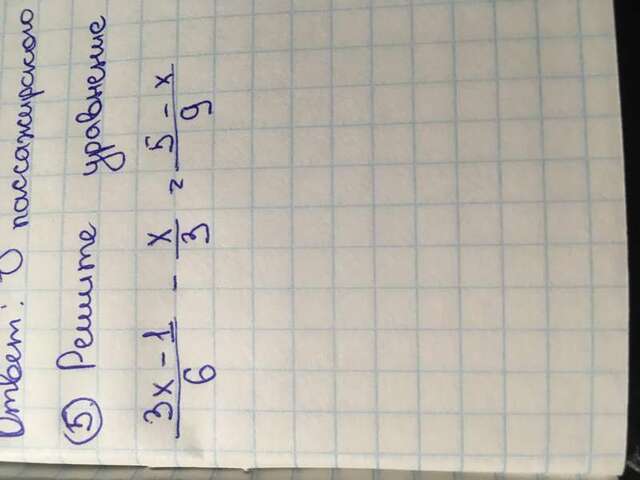 Ответ: V пассажирского
⑤ Решите уравнение
(3x - 1)/6 - x/3 = (5 - x)/9